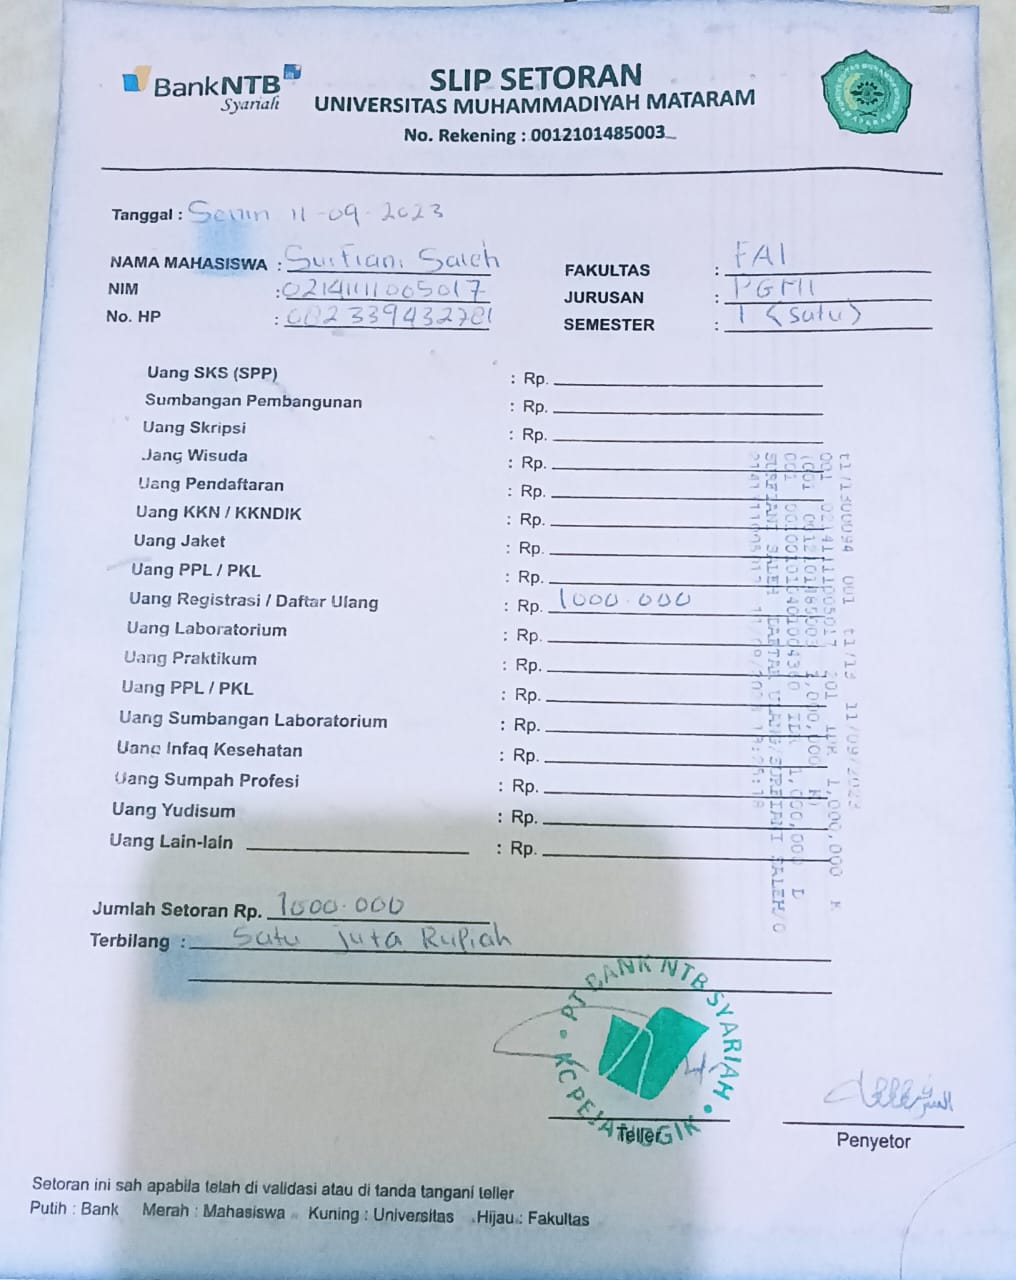 BankNTB
Syariah
SLIP SETORAN
UNIVERSITAS MUHAMMADIYAH MATARAM
No. Rekening : 0012101485003
Tanggal : Senin 11-09-2023
NAMA MAHASISWA : Surfiani Saleh
NIM : 02141111005017
No. HP : 082339432781
FAKULTAS : FAI
JURUSAN : PGMI
SEMESTER : 1 (Satu)
Uang SKS (SPP) : Rp.
Sumbangan Pembangunan : Rp.
Uang Skripsi : Rp.
Uang Wisuda : Rp.
Uang Pendaftaran : Rp.
Uang KKN / KKNDIK : Rp.
Uang Jaket : Rp.
Uang PPL / PKL : Rp.
Uang Registrasi / Daftar Ulang : Rp. 1000.000
Uang Laboratorium : Rp.
Uang Praktikum : Rp.
Uang PPL / PKL : Rp.
Uang Sumbangan Laboratorium : Rp.
Uang Infaq Kesehatan : Rp.
Uang Sumpah Profesi : Rp.
Uang Yudisum : Rp.
Uang Lain-lain : Rp.
001 02141111005017 201 IDR 1,000,000 K
Jumlah Setoran Rp. 1000.000
Terbilang : Satu juta Rupiah
PT BANK NTB SYARIAH
KC PEJANGGIK
Teller
Penyetor
Setoran ini sah apabila telah di validasi atau di tanda tangani teller
Putih : Bank Merah : Mahasiswa Kuning : Universitas Hijau : Fakultas